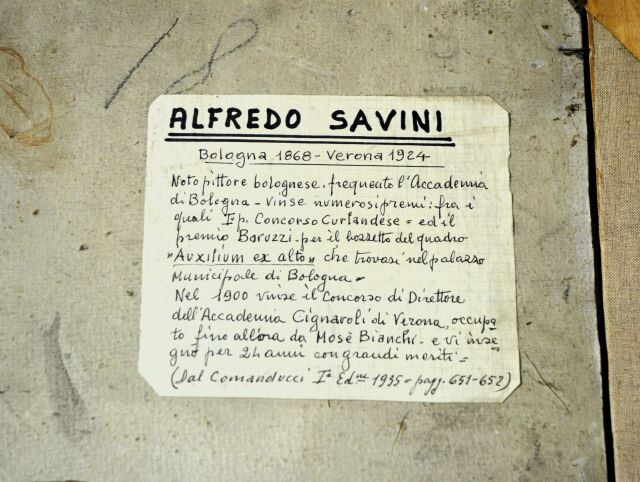 18
ALFREDO SAVINI
Bologna 1868 - Verona 1924
Noto pittore bolognese. frequentò l'Accademia
di Bologna - vinse numerosi premi: fra i
quali Iº p. Concorso Curlandese = ed il
premio Baruzzi - per il bozzetto del quadro
"Auxilium ex alto" che trovasi nel palazzo
Municipale di Bologna -
Nel 1900 vinse il Concorso di Direttore
dell'Accademia Cignaroli di Verona, occupa
to fino allora da Mosè Bianchi - e vi inse
gnò per 24 anni con grandi meriti =
(Dal Comanducci Iª Edne 1935 = pagg. 651-652)